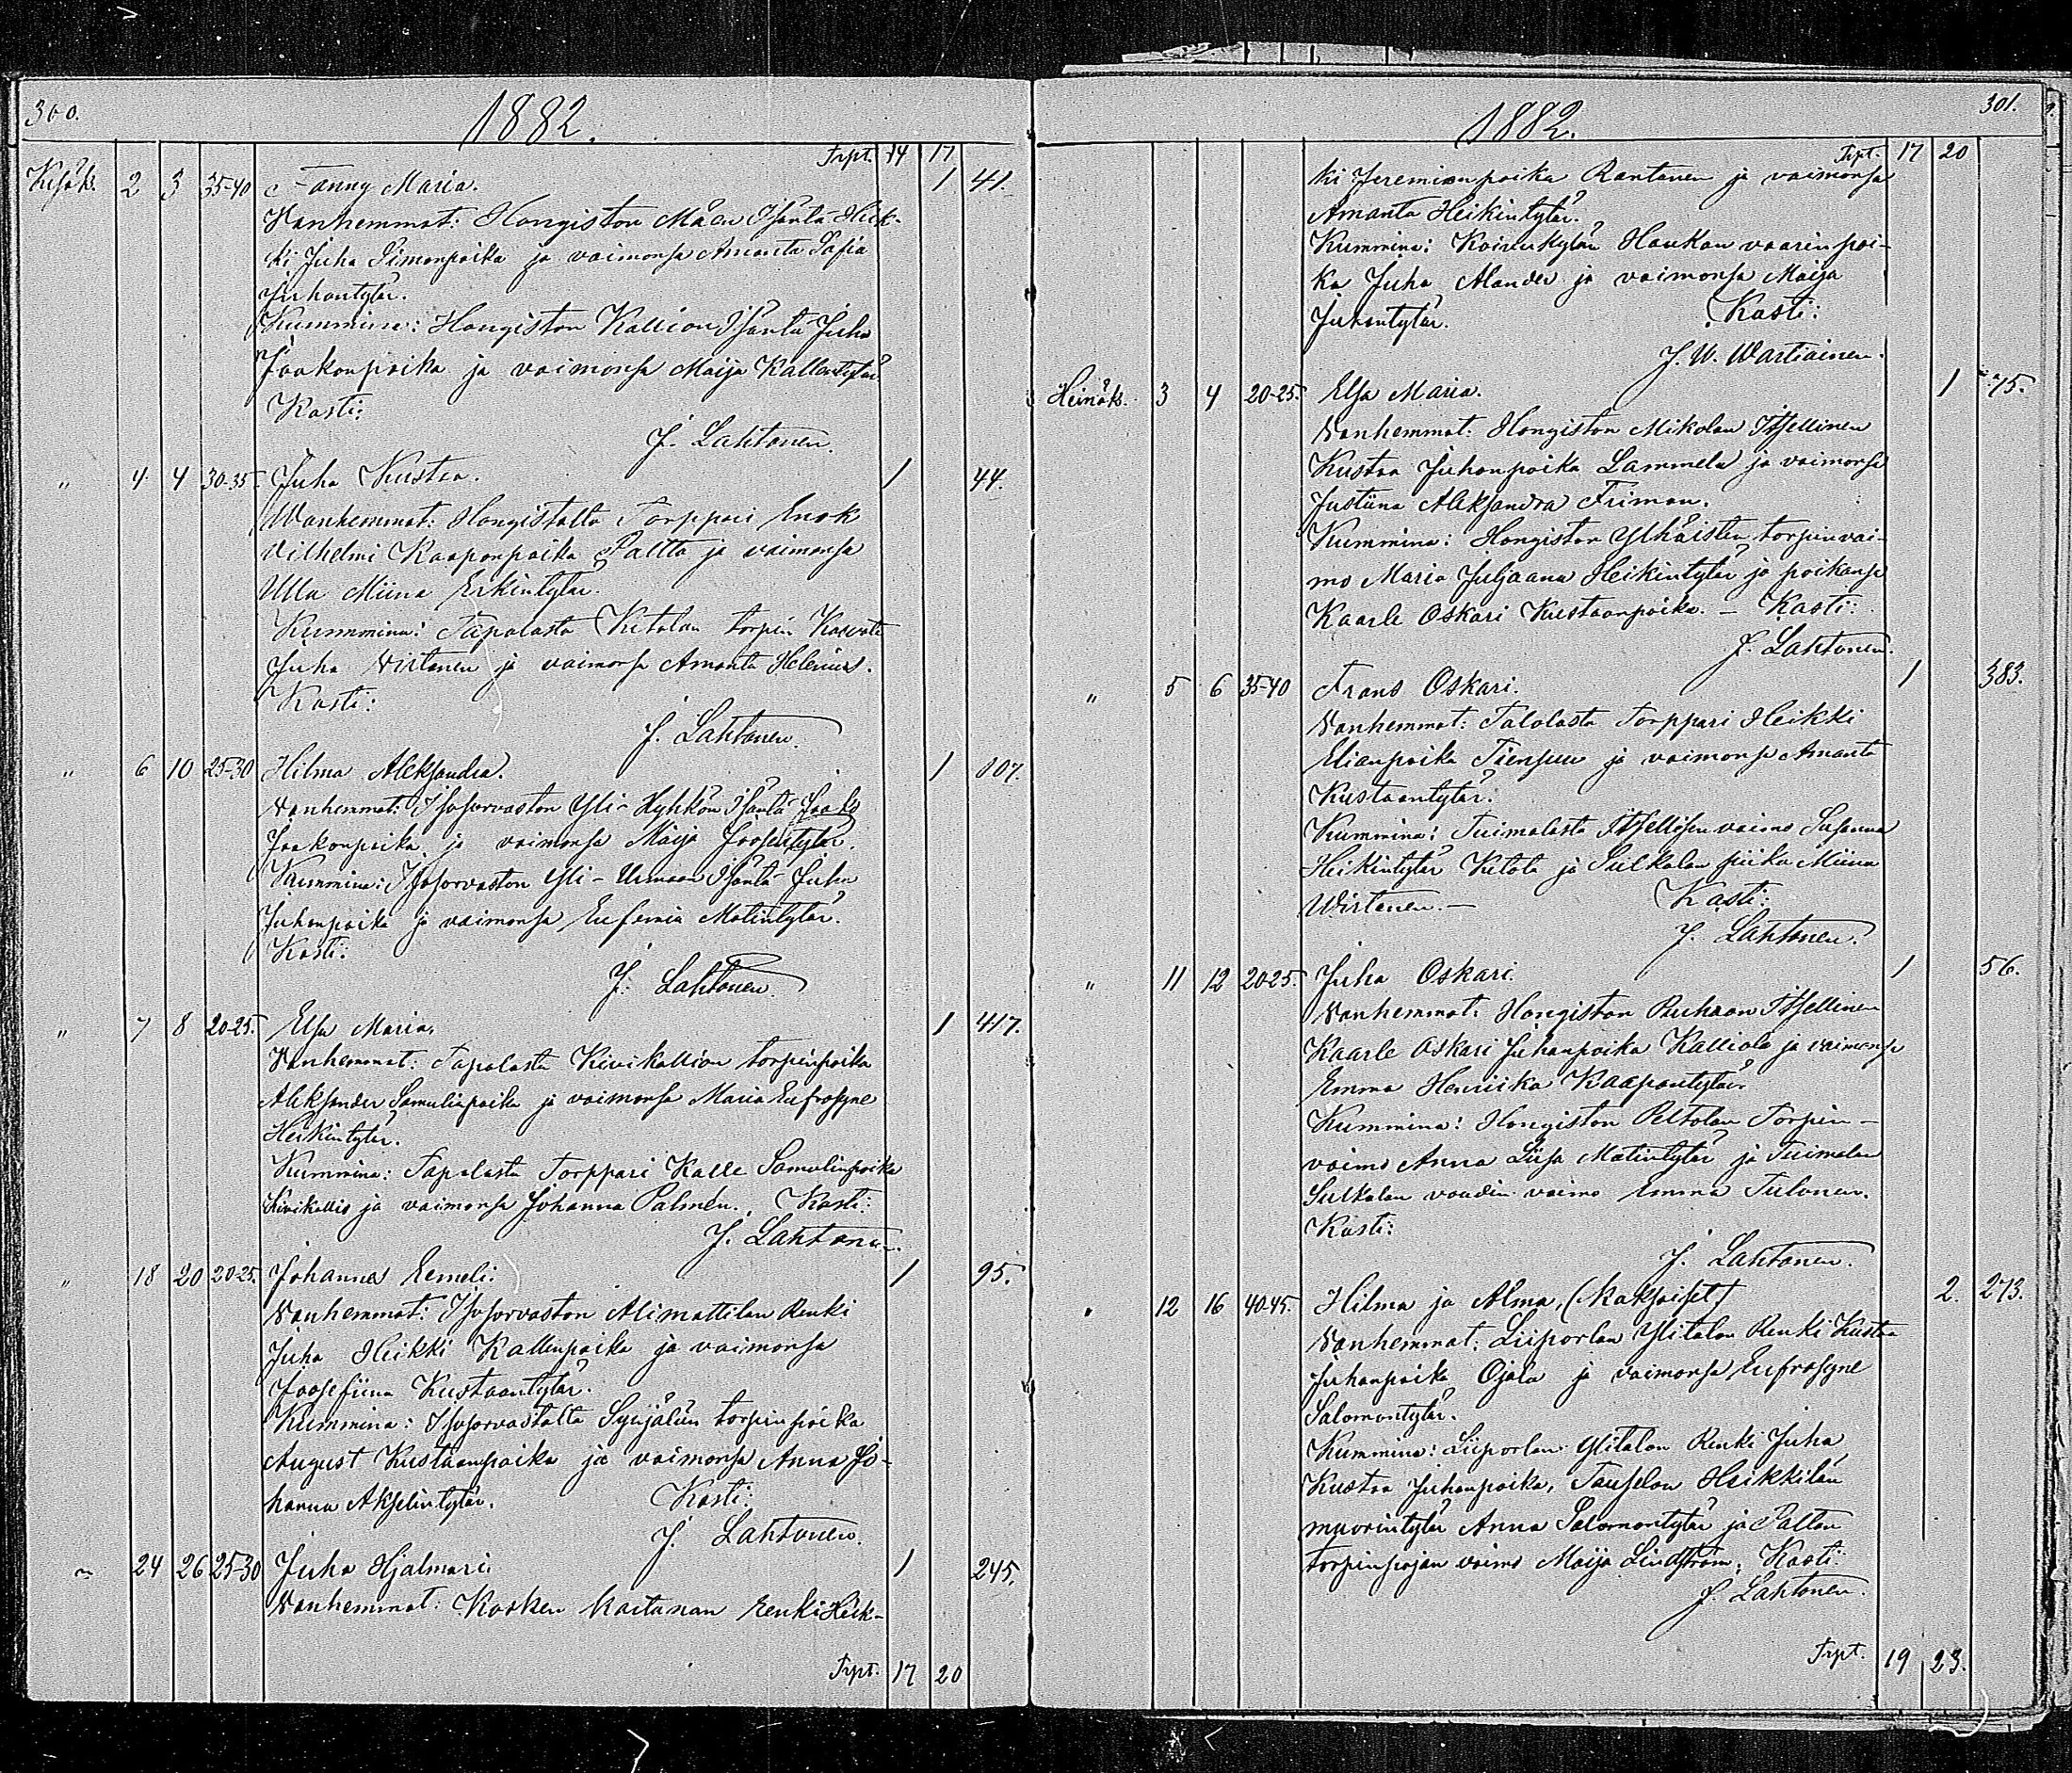 300.
1882.
Trpt. 14 17
Kesäk. 2 3 35-40 Fanny Maria. 1 41.
Vanhemmat: Hongiston Mäen Isäntä Heik-
ki Juha Simonpoika ja vaimonsa Amanta Sofia
Juhontytär.
Kummina: Hongiston Kallion Isäntä Juha
Jaakonpoika ja vaimonsa Maija Kallentytär
Kasti:
J. Lahtonen.
" 4 4 30-35 Juha Kustaa. 1 44.
Wanhemmat: Hongistolta Torppari Enok
Vilhelmi Kaaponpoika Paltta ja vaimonsa
Ulla Miina Erkintytär.
Kummina: Tapalasta Ketolan torpin Kasvate
Juha Virtanen ja vaimonsa Amanta Helenius.
Kasti:
J. Lahtonen.
" 6 10 25-30 Hilma Aleksandra. 1 107.
Vanhemmat: Isosorvaston Yli-Hyhkön Isäntä Jaako
Jaakonpoika ja vaimonsa Maija Joosentytär.
Kummina: Isosorvaston Yli-Urmaan Isäntä Juha
Juhonpoika ja vaimonsa Eufemia Matintytär.
Kasti:
J. Lahtonen.
" 7 8 20-25. Elsa Maria. 1 417.
Vanhemmat: Tapalasta Kivikallion torpinpoika
Aleksander Samulinpoika ja vaimonsa Maria Eufrosyne
Heikintytär.
Kummina: Tapalasta Torppari Kalle Samulinpoika
Kivikallio ja vaimonsa Johanna Palmen. Kasti:
J. Lahtonen.
" 18 20 20-25. Johannes Eemeli. 1 95.
Vanhemmat: Isosorvaston Alimattilan Renki
Juha Heikki Kallenpoika ja vaimonsa
Joosefiina Kustaantytär.
Kummina: Isosorvastolta Syrjälän torpinpoika
August Kustaanpoika ja vaimonsa Anna Jo-
hanna Akselintytär. Kasti:
J. Lahtonen.
" 24 26 25-30 Juha Hjalmari. 1 245.
Vanhemmat: Kosken kartanon renki Heik-
Trpt. 17 20
301.
1882.
Trpt. 17 20
ki Jeremianpoika Rantanen ja vaimonsa
Amanta Heikintytär.
Kummina: Koivukylän Haukan vaarin poi-
ka Juha Alander ja vaimonsa Maija
Juhontytär. Kasti:
J. W. Wartiainen.
Heinäk. 3 4 20-25. Elsa Maria. 1 75.
Vanhemmat: Hongiston Mikolan Itsellinen
Kustaa Juhonpoika Lammela ja vaimonsa
Justiina Aleksandra Friman.
Kummina: Hongiston Ylhäisten torpinvai-
mo Maria Juljaana Heikintytär ja poikansa
Kaarle Oskari Kustaanpoika. - Kasti:
J. Lahtonen.
" 5 6 35-40 Frans Oskari. 1 383.
Vanhemmat: Talolasta Torppari Heikki
Elianpoika Tiensuu ja vaimonsa Amanta
Kustaantytär.
Kummina: Tuimalasta Itsellisen vaimo Susanna
Heikintytär Ketola ja Sulkalan piika Miina
Wirtanen. - Kasti:
J. Lahtonen.
" 11 12 20-25. Juha Oskari. 1 56.
Vanhemmat: Hongiston Itsellinen
Kaarle Oskari Juhanpoika Kalliola ja vaimonsa
Emma Henriika Kaapontytär
Kummina: Hongiston Peltolan Torpin-
vaimo Anna Liisa Matintytär ja Tuimalan
Sulkalan voudin vaimo Emma Tulonen.
Kasti:
J. Lahtonen.
" 12 16 40-45. Hilma ja Alma, (kaksoiset) 2. 273.
Vanhemmat: Liiporlan Ylitalon Renki Kustaa
Juhanpoika Ojala ja vaimonsa Eufrosyne
Salomontytär.
Kummina: Liiporlan Ylitalon Renki Juha
Kustaa Juhonpoika, Heikkilän
muorintytär Anna Salomontytär ja Paltan
torpinpojan vaimo Maija Lindström. Kasti:
J. Lahtonen.
Trpt. 19 23.